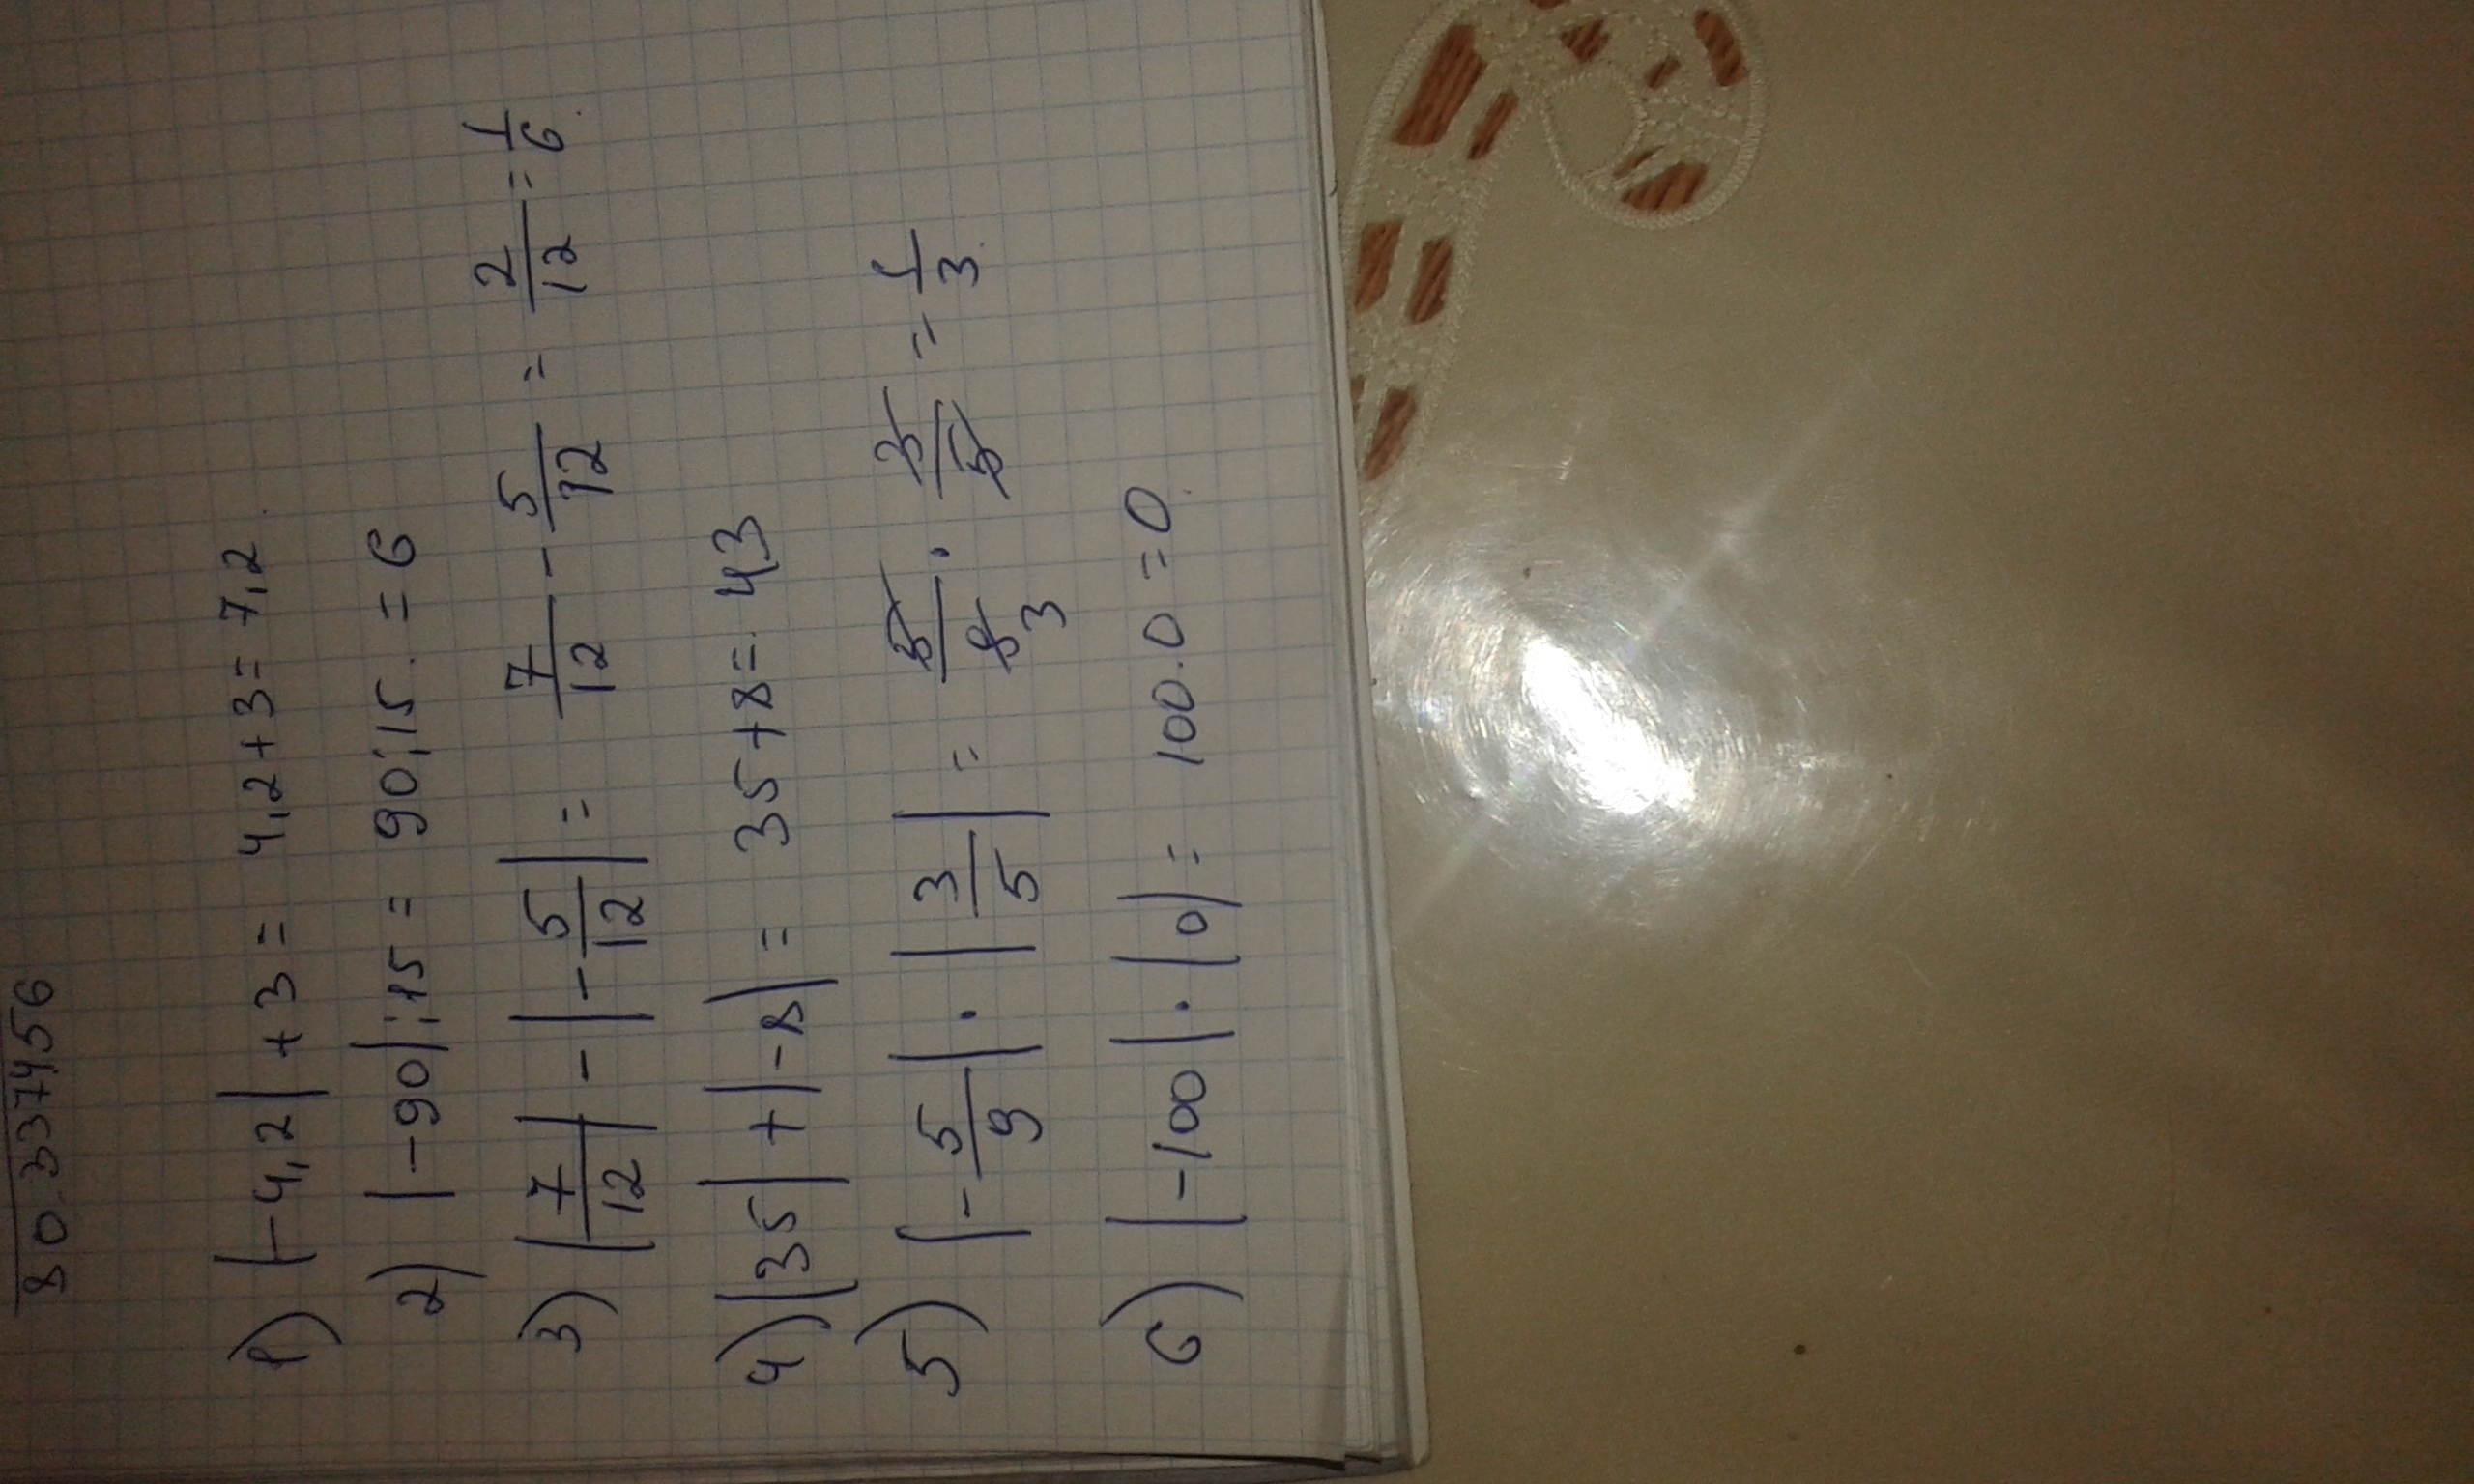 80.337456
1) |-4,2|+3= 4,2+3=7,2.
2) |-90|:15= 90:15.=6
3) |7/12|-|-5/12|= 7/12-5/12=2/12=1/6.
4) |35|+|-8|= 35+8=43
5) |-5/9|·|3/5|= 5/9 3·3/5=1/3.
6) |-100|·|0|= 100.0=0.